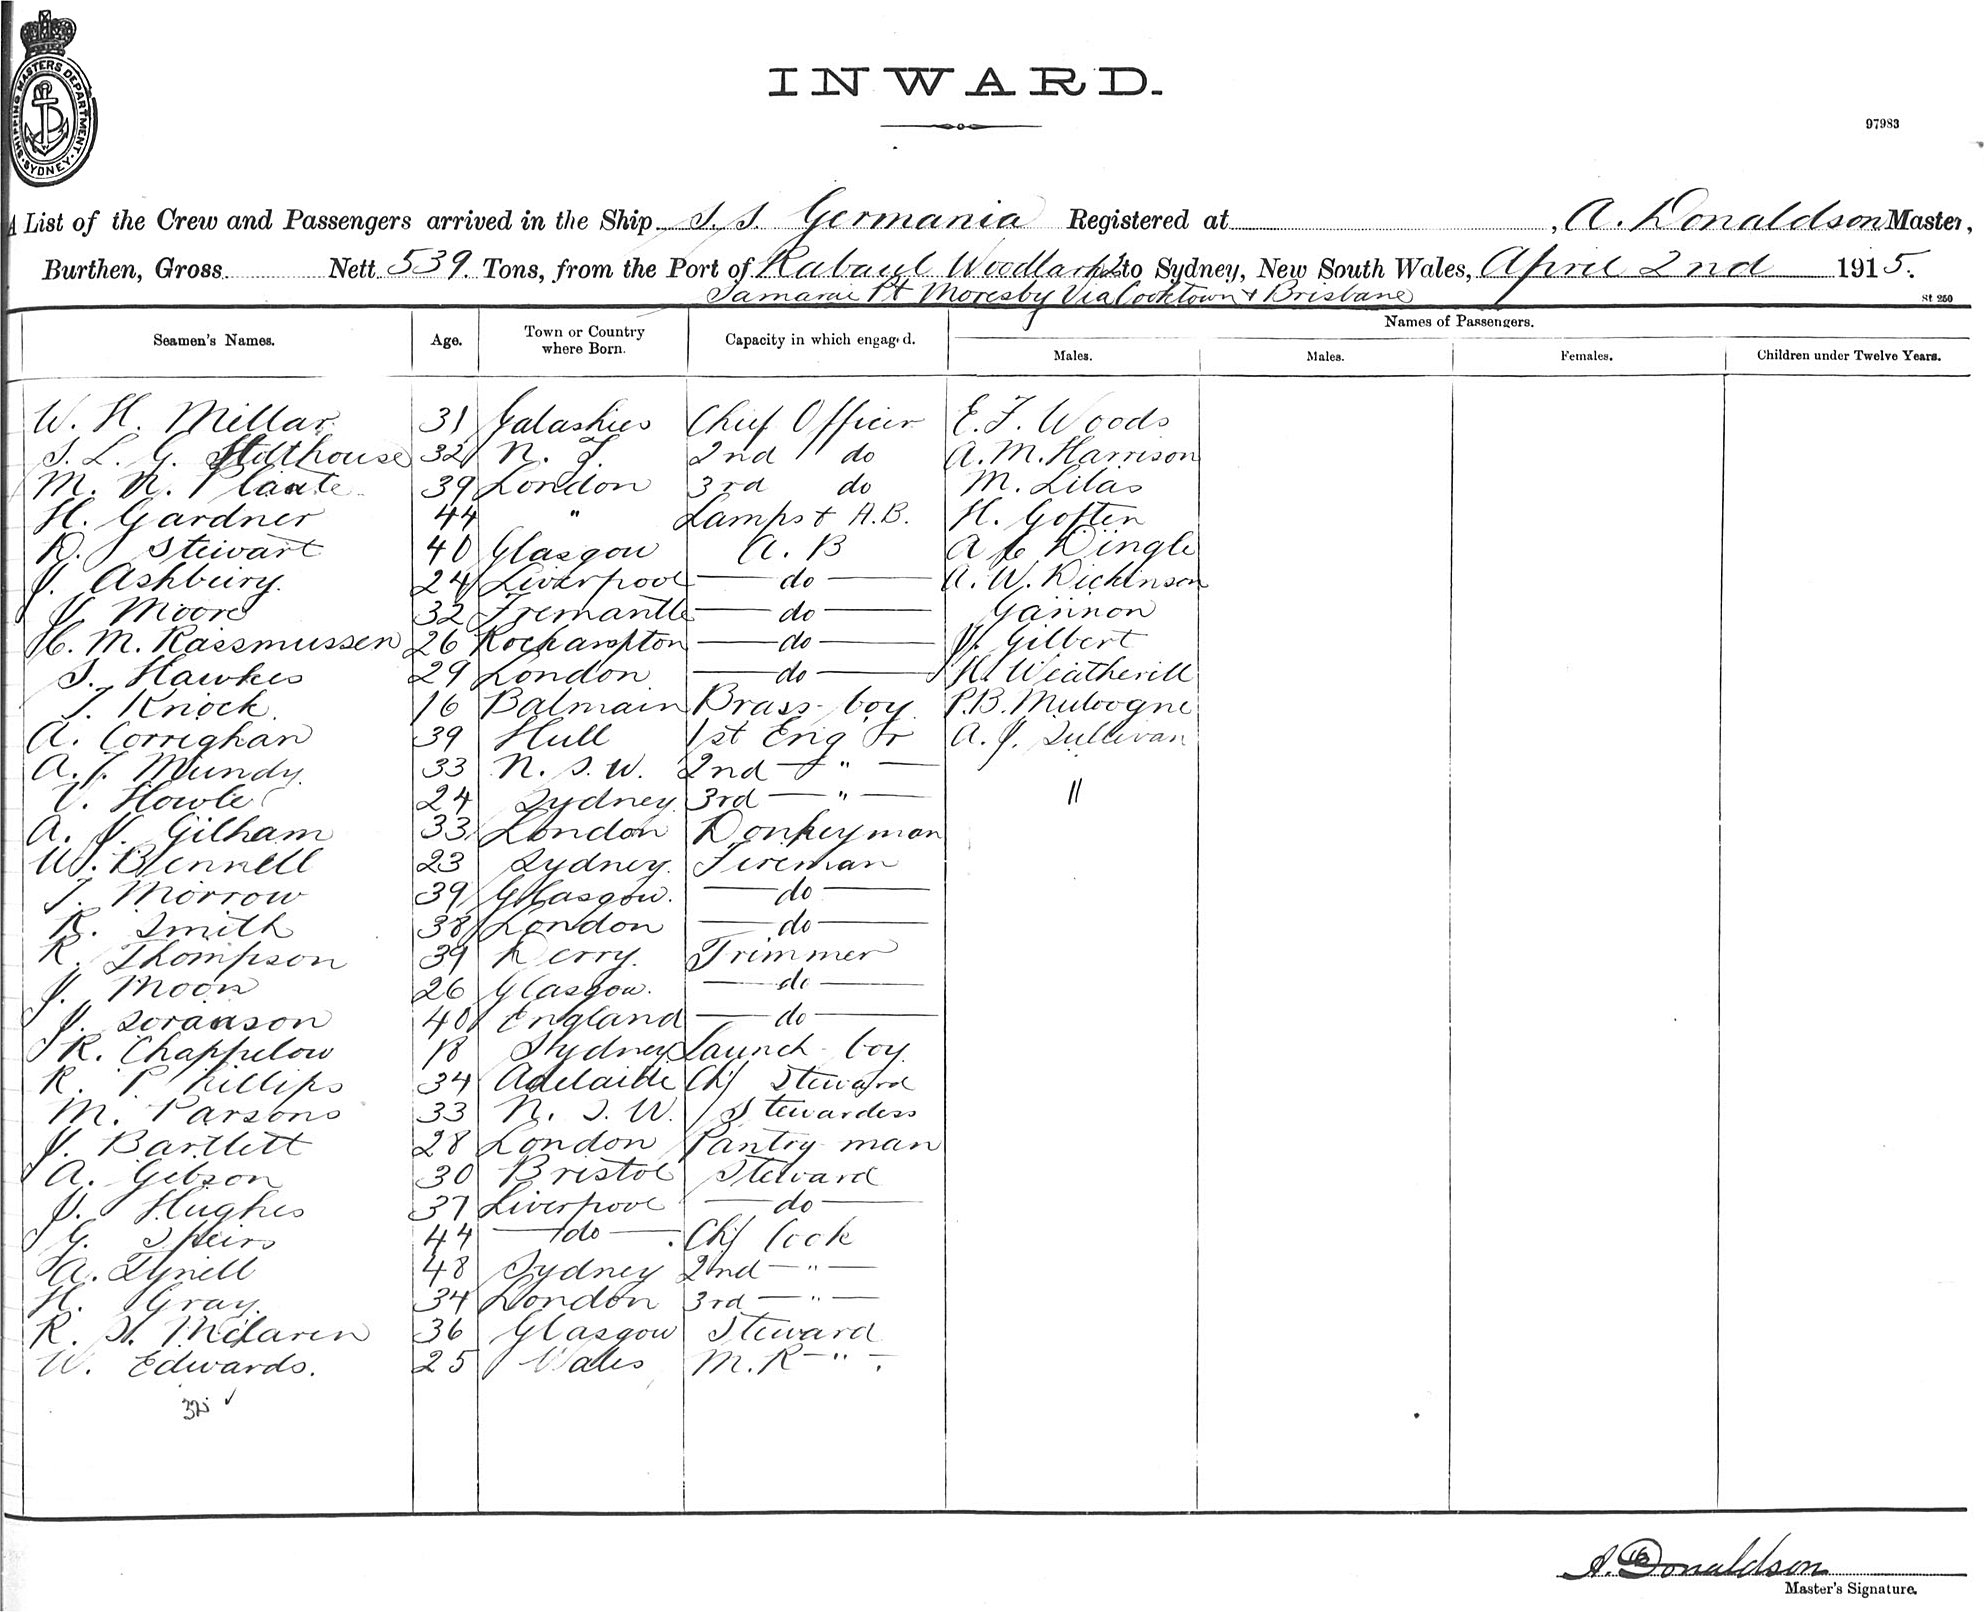 SHIPPING MASTERS DEPARTMENT. SYDNEY.
INWARD.
97983
A List of the Crew and Passengers arrived in the Ship S.S. Germania Registered at , A. Donaldson Master,
Burthen, Gross. Nett 539. Tons, from the Port of Rabaul Woodlark to Sydney, New South Wales, April 2nd 1915.
Samarai Pt Moresby Via Cooktown & Brisbane
St 250
Seamen's Names. Age. Town or Country where Born. Capacity in which engaged. Names of Passengers.
Males. Males. Females. Children under Twelve Years.
W. H. Millar 31 Galashies Chief Officer E. F. Woods
S. L. G. 32 N. 2nd do A. M. Harrison
M. N. Plante 39 London 3rd do M. Lilas
H. Gardner 44 " Lamps & A.B. H. Goften
D. Stewart 40 Glasgow A. B A Dingle
J. Ashbury. 24 Liverpool do A. W. Dickinson
J. Moore 32 Fremantle do Gannon
H. M. Rassmussen 26 Rockampton do J. Gilbert
S. Hawkes 29 London do H. Weatherill
T. Knock. 16 Balmain Brass-boy P.B.
A. Corrighan 39 Hull 1st Eng A. J. Sullivan
A. J. Mundy. 33 N. S. W. 2nd "
V. Howle 24 Sydney. 3rd " 11
A. J. Gilham 33 London Donkeyman
W. Bennell 23 Sydney. Fireman
T. Morrow 39 Glasgow. do
R. Smith 38 London do
R. Thompson 39 Derry. Trimmer
J. Moon 26 Glasgow. do
J. Soranson 40 England do
R. Chappelow 18 Sydney Launch-boy
R. Phillips 34 Adelaide Chf Steward
M. Parsons 33 N. S. W. Stewardess
J. Bartlett 28 London Pantry man
A. Gibson 30 Bristol Steward
J. Hughes 37 Liverpool do
G. Speirs 44 do Chf Cook
A. Tyrell 48 Sydney 2nd "
H. Gray. 34 London 3rd "
R. H. McLaren 36 Glasgow Steward
W. Edwards. 25 Wales M. R "
A. Donaldson
Master's Signature.